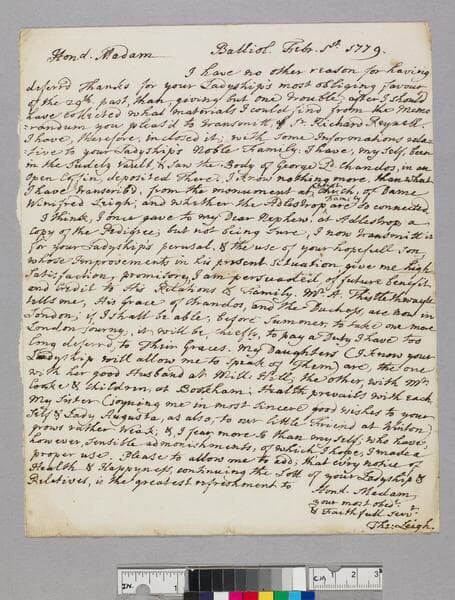 Hond. Madam Balliol. Febr. 1st. 1779.
I have no other reason for having
deferrd Thanks for your Ladyship's most obliging favour
of the 29th. past, than, giving but one Trouble, after I should
have collected what materials I could find from the Memo-
randum you pleas'd to Transmitt, of Sr. Richard
I have, therefore, inclosed it; with Some Informations rela-
tive to your Ladyship's Noble Family: I have, my Self, been
in the Sudely Vault, & Saw the Body of George Ld. Chandos, in an
Open Coffin, deposited There. I know nothing more than what
I have Transcrib'd, from the monument at Church, of Dame
Winifred Leigh; and whether the Adlestrop Family are so connected.
I think, I once gave to my Dear Nephew, at Adlestrop a
Copy of the Pedigree; but not being Sure, I now Transmitt it
for your Ladyship's perusal, & the use of your hopefull Son,
whose Improvements in his present Situation give me high
Satisfaction, promisory, I am persuaded of future benefit
and Credit to His Relations & Family. Mr. A. Thistlethwayte
tells me, His Grace of Chandos, and the Dutchess, are now in
London; if I shall be able, before Summer, to take one more
London Journy, it will be, chiefly, to pay a Duty I have Too
long deferrd, to Their Graces. My Daughters (I know your
Ladyship will allow me to Speak of Them) are, the one
with her good Husband at Mill-Hill, the other, with Mr.
Cooke & Children, at Bookham; Health prevails with each
My Sister (joyning me in most Sincere good wishes to your
Self & Lady Augusta, as also, to our little Friend at Winton)
grows rather Weak; & I fear more so than my Self; who have,
however, Sensible admonishments, of which I hope, I made a
proper use. Please to allow me to add; that every notice of
Health & Happyness, continuing the Lott of your Ladyship &
Relatives, is the greatest refreshment to
Hond. Madam,
your most obedt.
& Faithfull Servt.
The: Leigh.